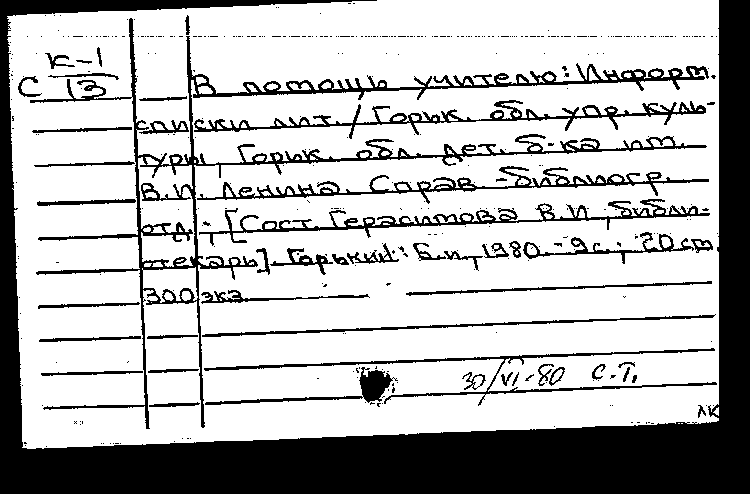 К-1
С 13
В помощь учителю: Информ.
списки лит. / Горьк. обл. упр. куль-
туры, Горьк. обл. дет. б-ка им.
В.И. Ленина. Справ-библиогр.
отд.; [Сост. Герасимова В.И, библи-
отекарь]. Горький: Б.и., 1980. - 9с.; 20 см.
300 экз
30/VI-80 С.Т.
ЛК